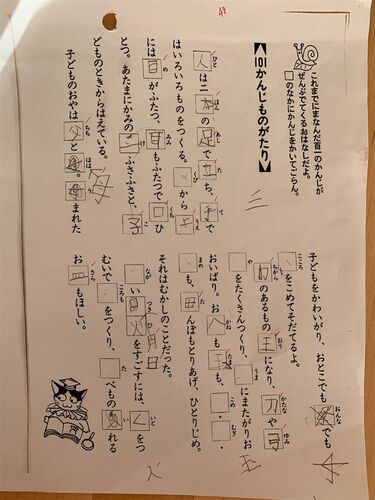 これまでにまなんだ百一のかんじが
ぜんぶでてくるおはなしだよ。
□のなかにかんじをかいてごらん。
101かんじものがたり
人は二本の足で立ち、手で
はいろいろものをつくる。□から
には目がふたつ、耳もふたつで口ひ
とつ。あたまにかみの□ふさふさと、子
どものときからはえている。
子どものおやは父と母。□まれた
子どもをかわいがり、おとこでも□でも
□をこめてそだてるよ。
力のあるもの王になり、刀や弓
□をたくさんつくり、□にまたがりお
おいばり。お□も玉も、□・□・
□も、田んぼもとりあげ、ひとりじめ。
それはむかしのことだった。
□い月日をすごすには、□をつ
むいで□をつくり、□べもの□れる
お皿もほしい。